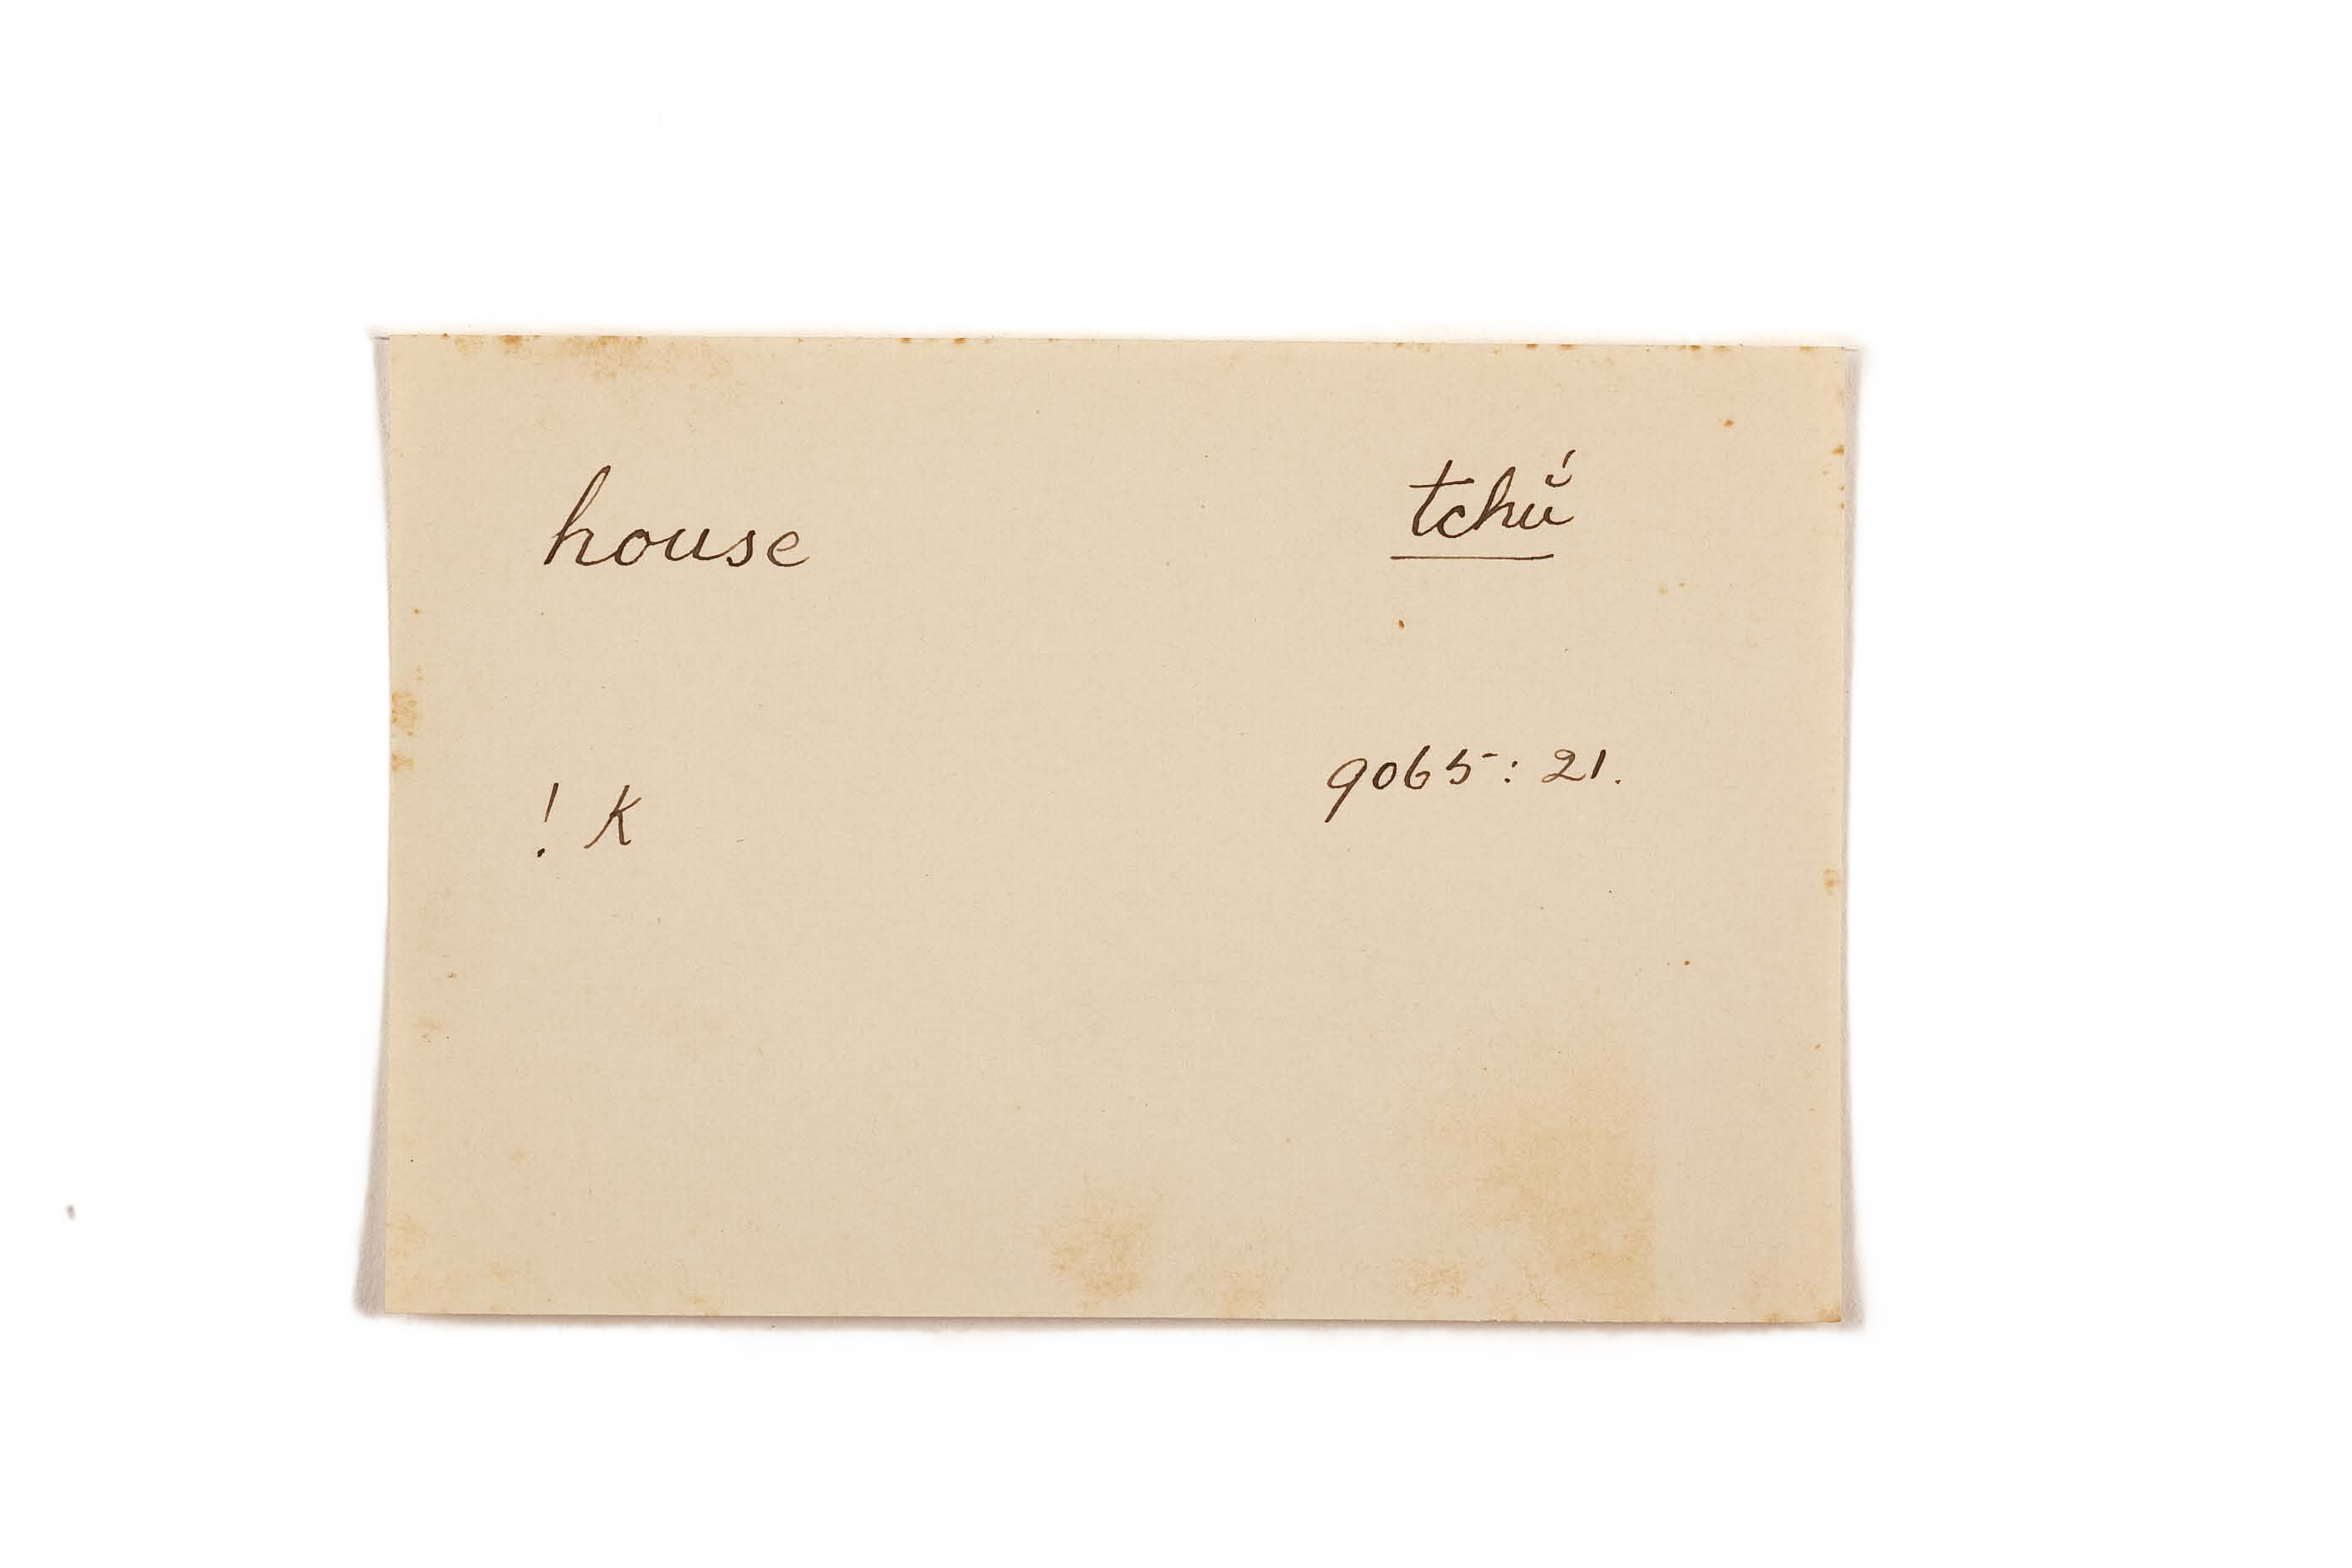 house tchŭ́
! K 9065: 21.